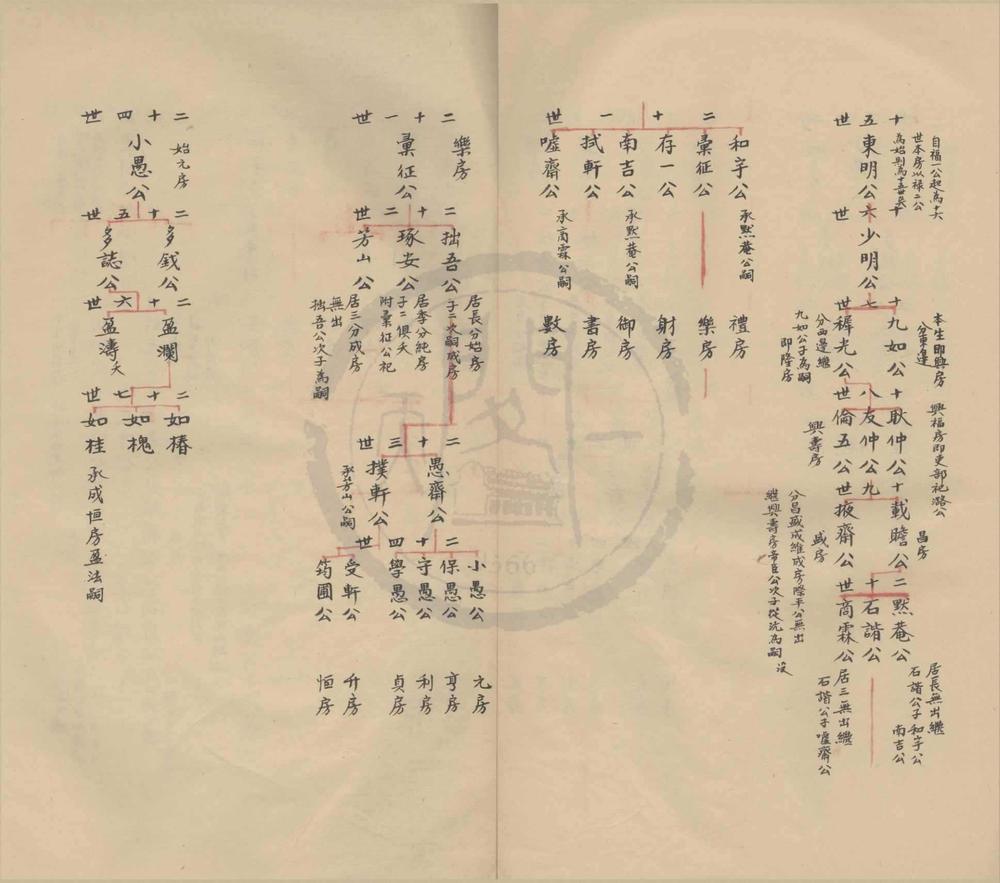 自福一公起為十六
世本房以祿二公
十五世
東明公
十六世
少明公
十七世
九如公
本生即興房
分東邊
穉光公
分西邊繼
九如公子為嗣
即隆房
十八世
耿仲公
興福房即吏部祀潞公
友仲公
倫五公
興壽房
十九世
載瞻公
昌房
掖齋公
盛房
分昌盛成維成房際平公無出
繼興壽房帝臣公次子從沈為嗣
二十世
默菴公
居長無出繼
石諧公子和宇公
南吉公
石諧公
商霖公
居三無出繼
石諧公子噓齋公
二十一世
和宇公
承默菴公嗣
禮房
彙征公
樂房
存一公
射房
南吉公
承默菴公嗣
御房
拭軒公
書房
噓齋公
承商霖公嗣
數房
樂房
二十一世
彙征公
二十二世
拙吾公
居長分始房
子二次嗣成房
琢安公
居季分純房
子二俱夭
附彙征公祀
芳山公
居三分成房
無出
拙吾公次子為嗣
二十三世
愚齋公
撲軒公
承芳山公嗣
二十四世
小愚公
元房
保愚公
亨房
守愚公
利房
學愚公
貞房
受軒公
升房
筠圃公
恒房
始元房
二十四世
小愚公
二十五世
多鉞公
多誌公
二十六世
盈瀾
盈濤
夭
二十七世
如椿
如槐
如桂
承成恒房盈法嗣